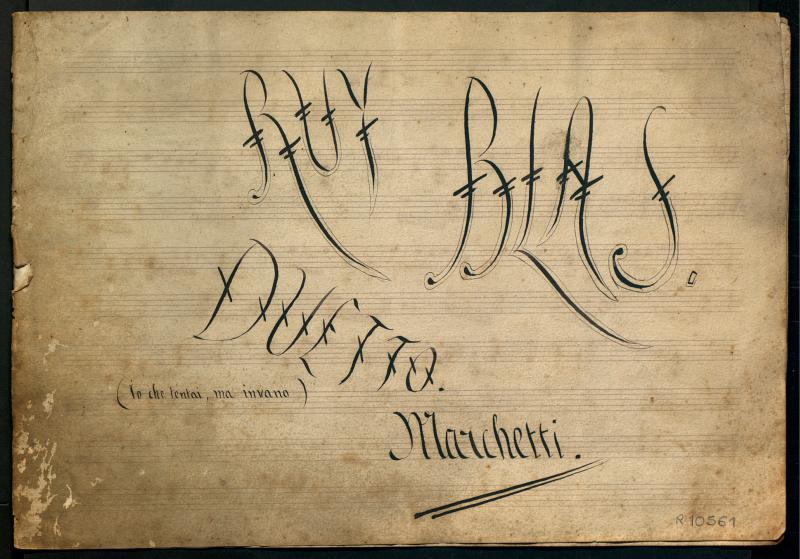 RUY BLAS.
DUETTO.
(Io che tentai, ma invano)
Marchetti.
R.10561